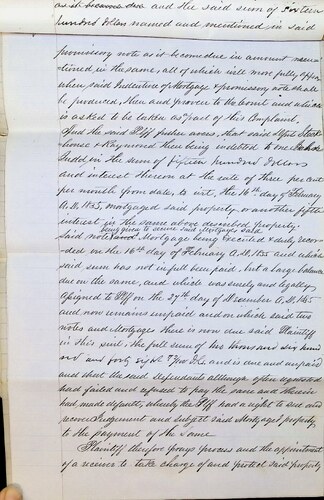 as it became due and the said sum of Sixteen
hundred dollars named and mentioned in said
promissory note as it become due in amount men-
tioned in the same, all of which will more fully appear
when said Indenture of Mortgage & promissory note shall
be produced, then and proven to the Court and which
is asked to be taken as part of this Complaint.
And the said Plff further avers, that said Stock-
homes & Raymond then being indebted to one
Judd in the sum of fifteen hundred dollars
and interest thereon at the rate of three per cent
per month from date, to wit, the 16th day of February
A.D. 1855, mortgaged said property, or another fifth
interest in the same above described property,
being given to secure said Mortgage said
said note Mortgage being executed & duly recor-
ded on the 16th day of February A.D. 1855 and which
said sum has not in full been paid, but a large balance
due on the same, and which was surely and legally
assigned to Plff on the 27th day of December A.D. 1855
and now remains unpaid and on which said two
notes and Mortgage there is now due said Plaintiff
in this suit, the full sum of two thousand six hund
red and forty eight Dolls and is due and unpaid
and that the said defendants although often requested
had failed and refused to pay the same and therein
had made default, whereby the Plff had a right to sue and
recover Judgement and subject said Mortgaged property
to the payment of the same
Plaintiff therefore prays process and the appointment
of a receiver to take charge of and protect said property